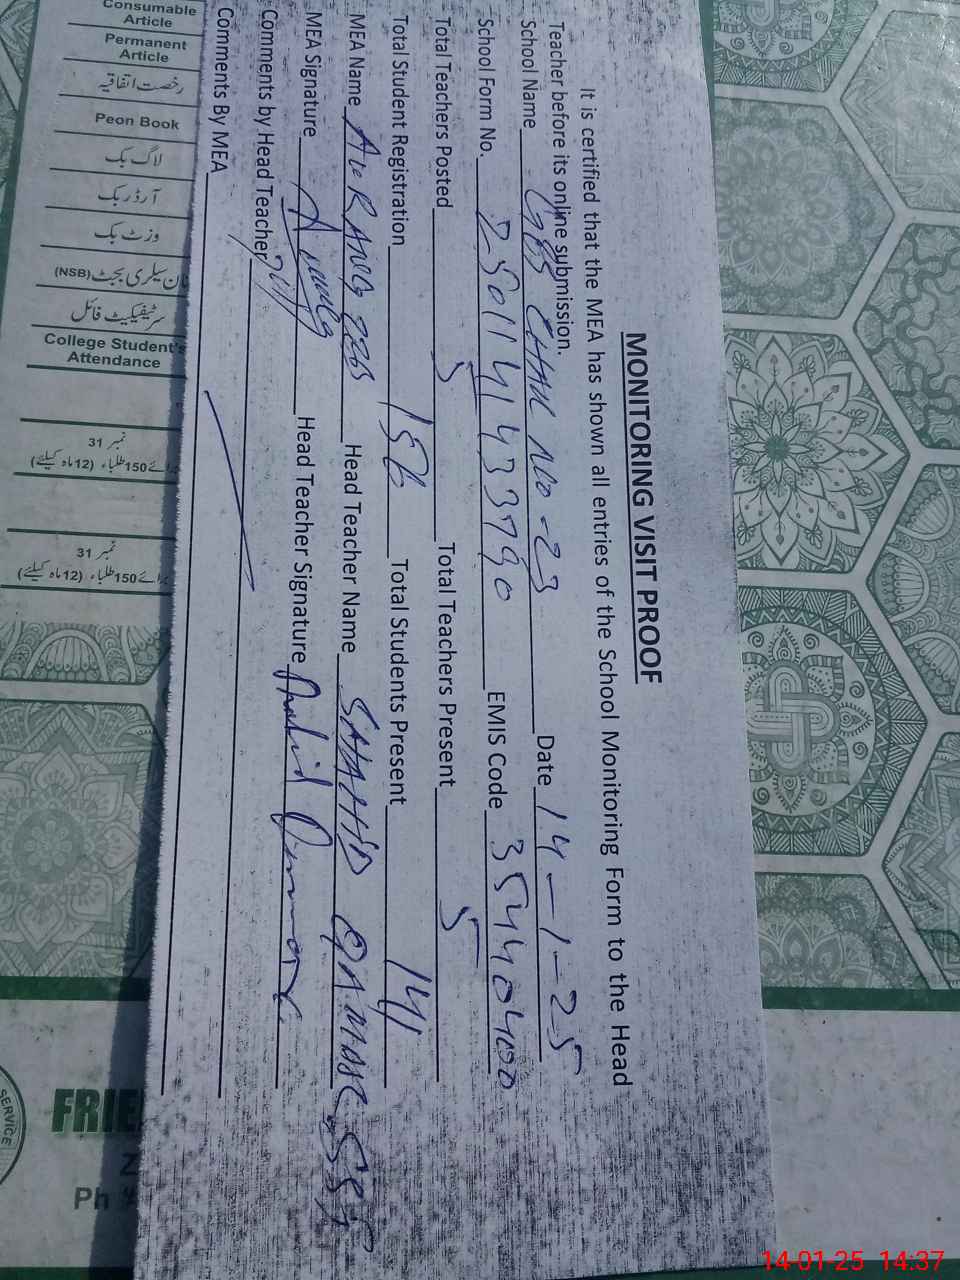 MONITORING VISIT PROOF
It is certified that the MEA has shown all entries of the School Monitoring Form to the Head
Teacher before its online submission.
School Name CHAK NO-23 Date 14-1-25
School Form No. EMIS Code 35440400
Total Teachers Posted 5 Total Teachers Present 5
Total Student Registration Total Students Present 141
MEA Name AURANG ZEB Head Teacher Name SHAHID QAMAR SST
MEA Signature Head Teacher Signature
Comments by Head Teacher
Comments By MEA
Consumable
Article
Permanent
Article
رخصت اتفاقیہ
Peon Book
لاگ بک
آرڈر بک
وزٹ بک
نان سیلری بجٹ (NSB)
سرٹیفیکیٹ فائل
College Student's
Attendance
نمبر 31
برائے 150 طلباء (12 ماہ کیلئے)
نمبر 31
برائے 150 طلباء (12 ماہ کیلئے)
SERVICE
Ph
14-01-25 14:37